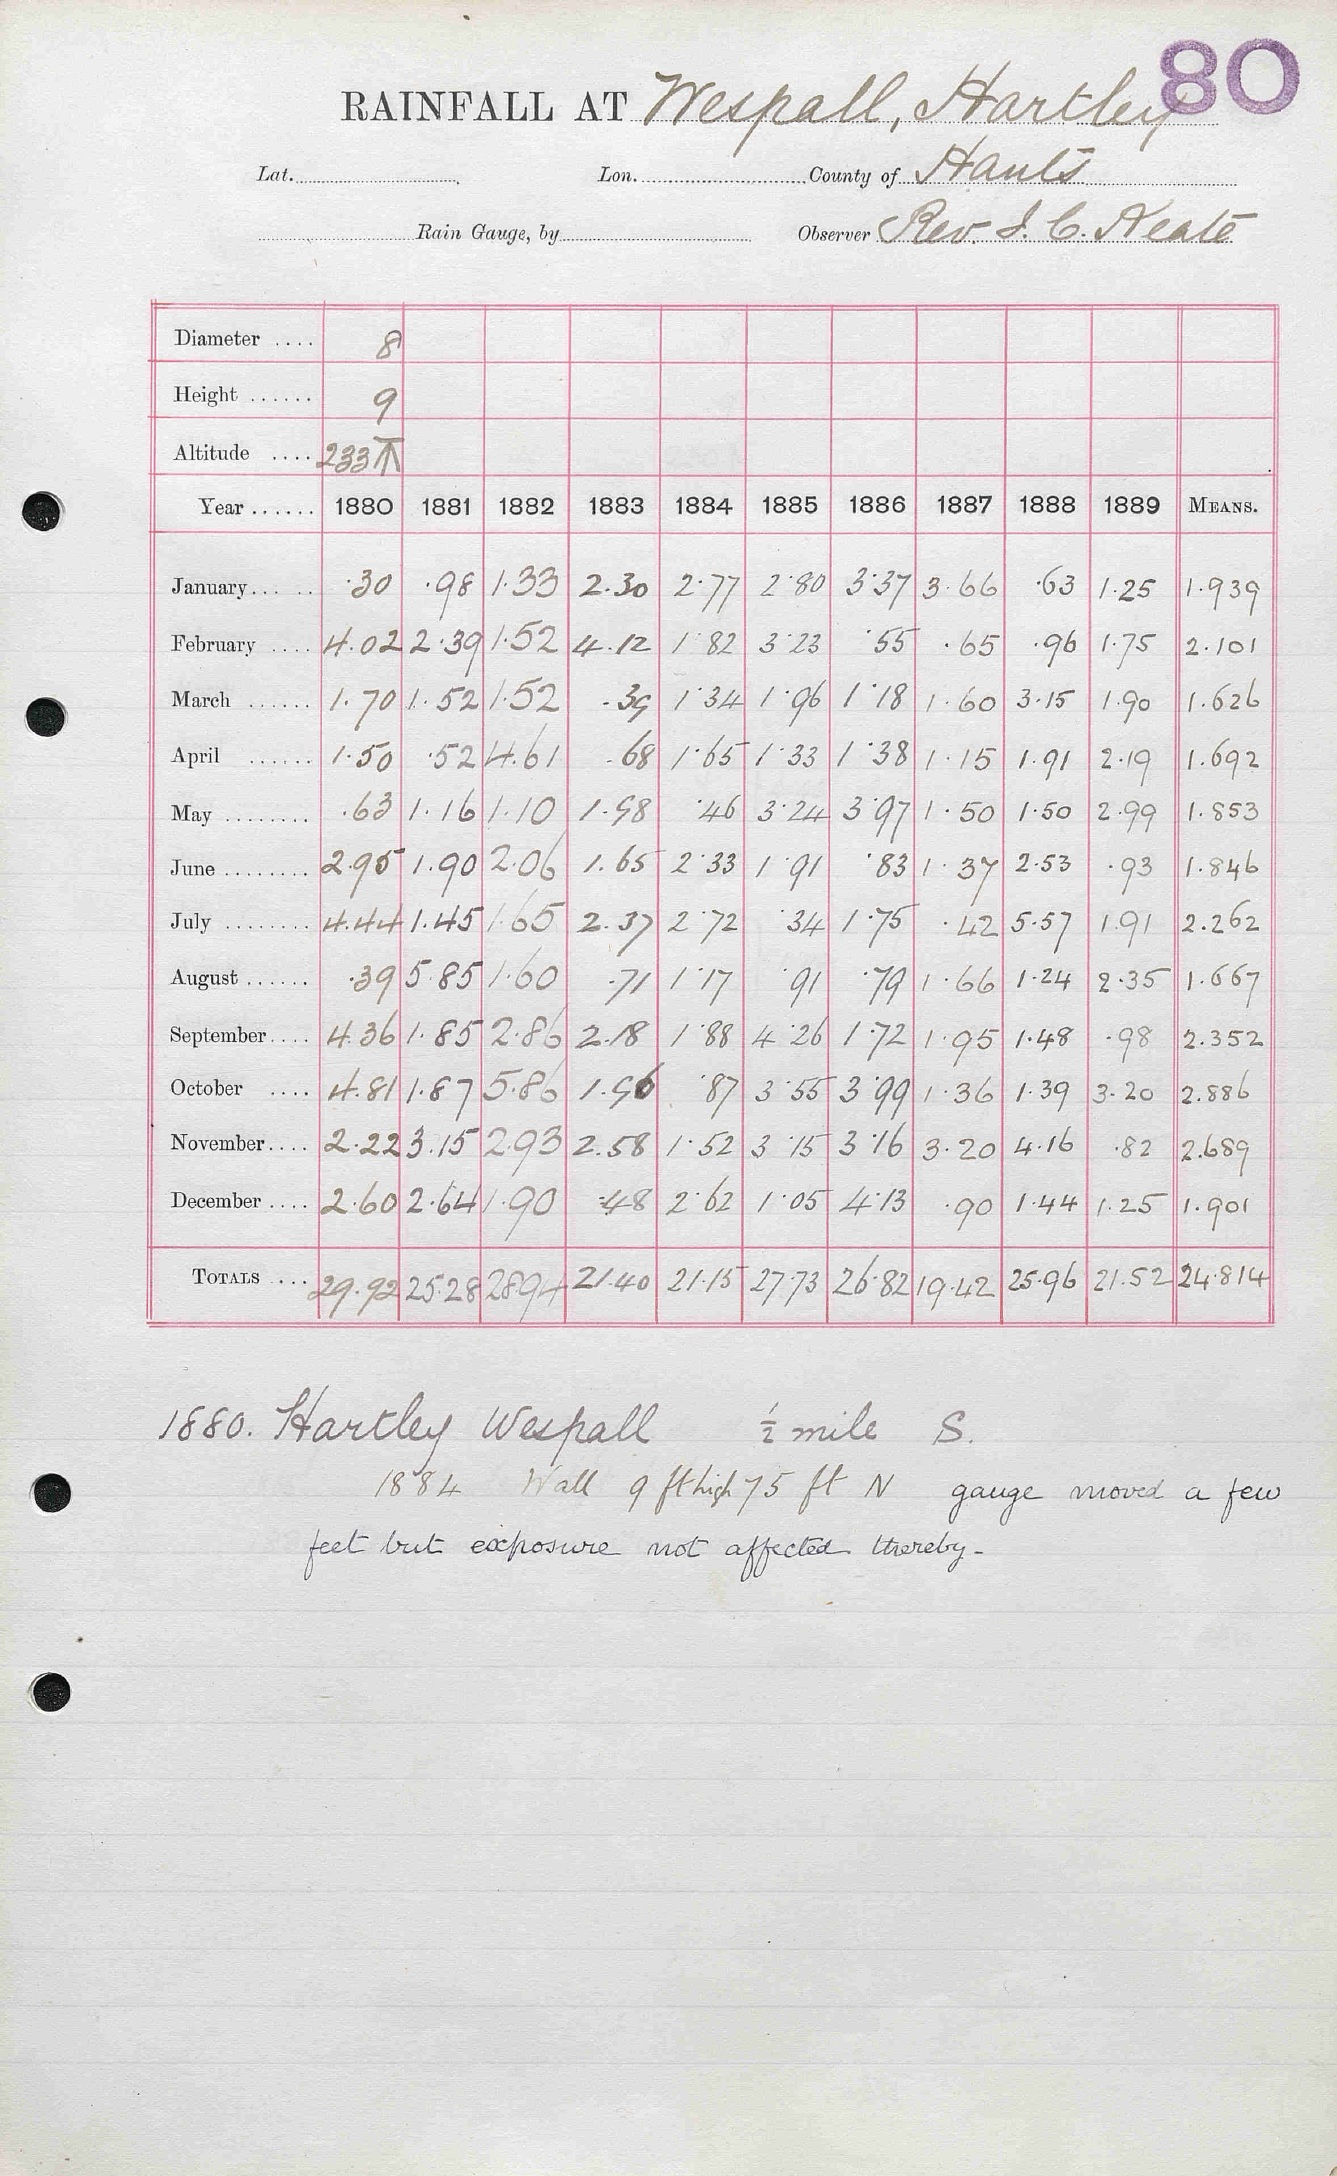 80
RAINFALL AT Wespall, Hartley
Lat. Lon. County of Hants
Rain Gauge, by Observer Rev. J. C. Keate
Diameter .... 8
Height ...... 9
Altitude .... 233
Year ...... 1880 1881 1882 1883 1884 1885 1886 1887 1888 1889 MEANS.
January ... .. .30 .98 1.33 2.30 2.77 2.80 3.37 3.66 .63 1.25 1.939
February .... 4.02 2.39 1.52 4.12 1.82 3.23 .55 .65 .96 1.75 2.101
March ...... 1.70 1.52 1.52 .39 1.34 1.96 1.18 1.60 3.15 1.90 1.626
April ...... 1.50 .52 4.61 .68 1.65 1.33 1.38 1.15 1.91 2.19 1.692
May ........ .63 1.16 1.10 1.98 .46 3.24 3.97 1.50 1.50 2.99 1.853
June ........ 2.95 1.90 2.06 1.65 2.33 1.91 .83 1.37 2.53 .93 1.846
July ........ 4.44 1.45 1.65 2.37 2.72 .34 1.75 .42 5.57 1.91 2.262
August ...... .39 5.85 1.60 .71 1.17 .91 .79 1.66 1.24 2.35 1.667
September .... 4.36 1.85 2.86 2.18 1.88 4.26 1.72 1.95 1.48 .98 2.352
October .... 4.81 1.87 5.86 1.96 .87 3.55 3.99 1.36 1.39 3.20 2.886
November .... 2.22 3.15 2.93 2.58 1.52 3.15 3.16 3.20 4.16 .82 2.689
December .... 2.60 2.64 1.90 .48 2.62 1.05 4.13 .90 1.44 1.25 1.901
TOTALS ... 29.92 25.28 28.94 21.40 21.15 27.73 26.82 19.42 25.96 21.52 24.814
1880. Hartley Wespall ½ mile S.
1884 Wall 9 ft high 75 ft N gauge moved a few
feet but exposure not affected thereby -